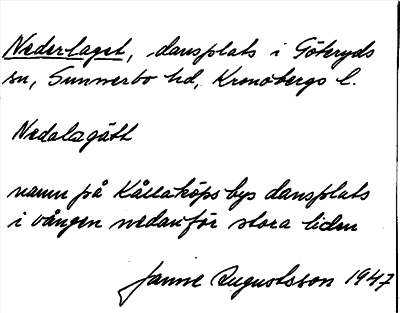 Nederlaget, dansplats i Göteryds
sn, Sunnerbo hd, Kronobergs l.
Nedalagått
namn på Kållaköps bys dansplats
i vången nedanför stora liden
Janne Augustsson 1947